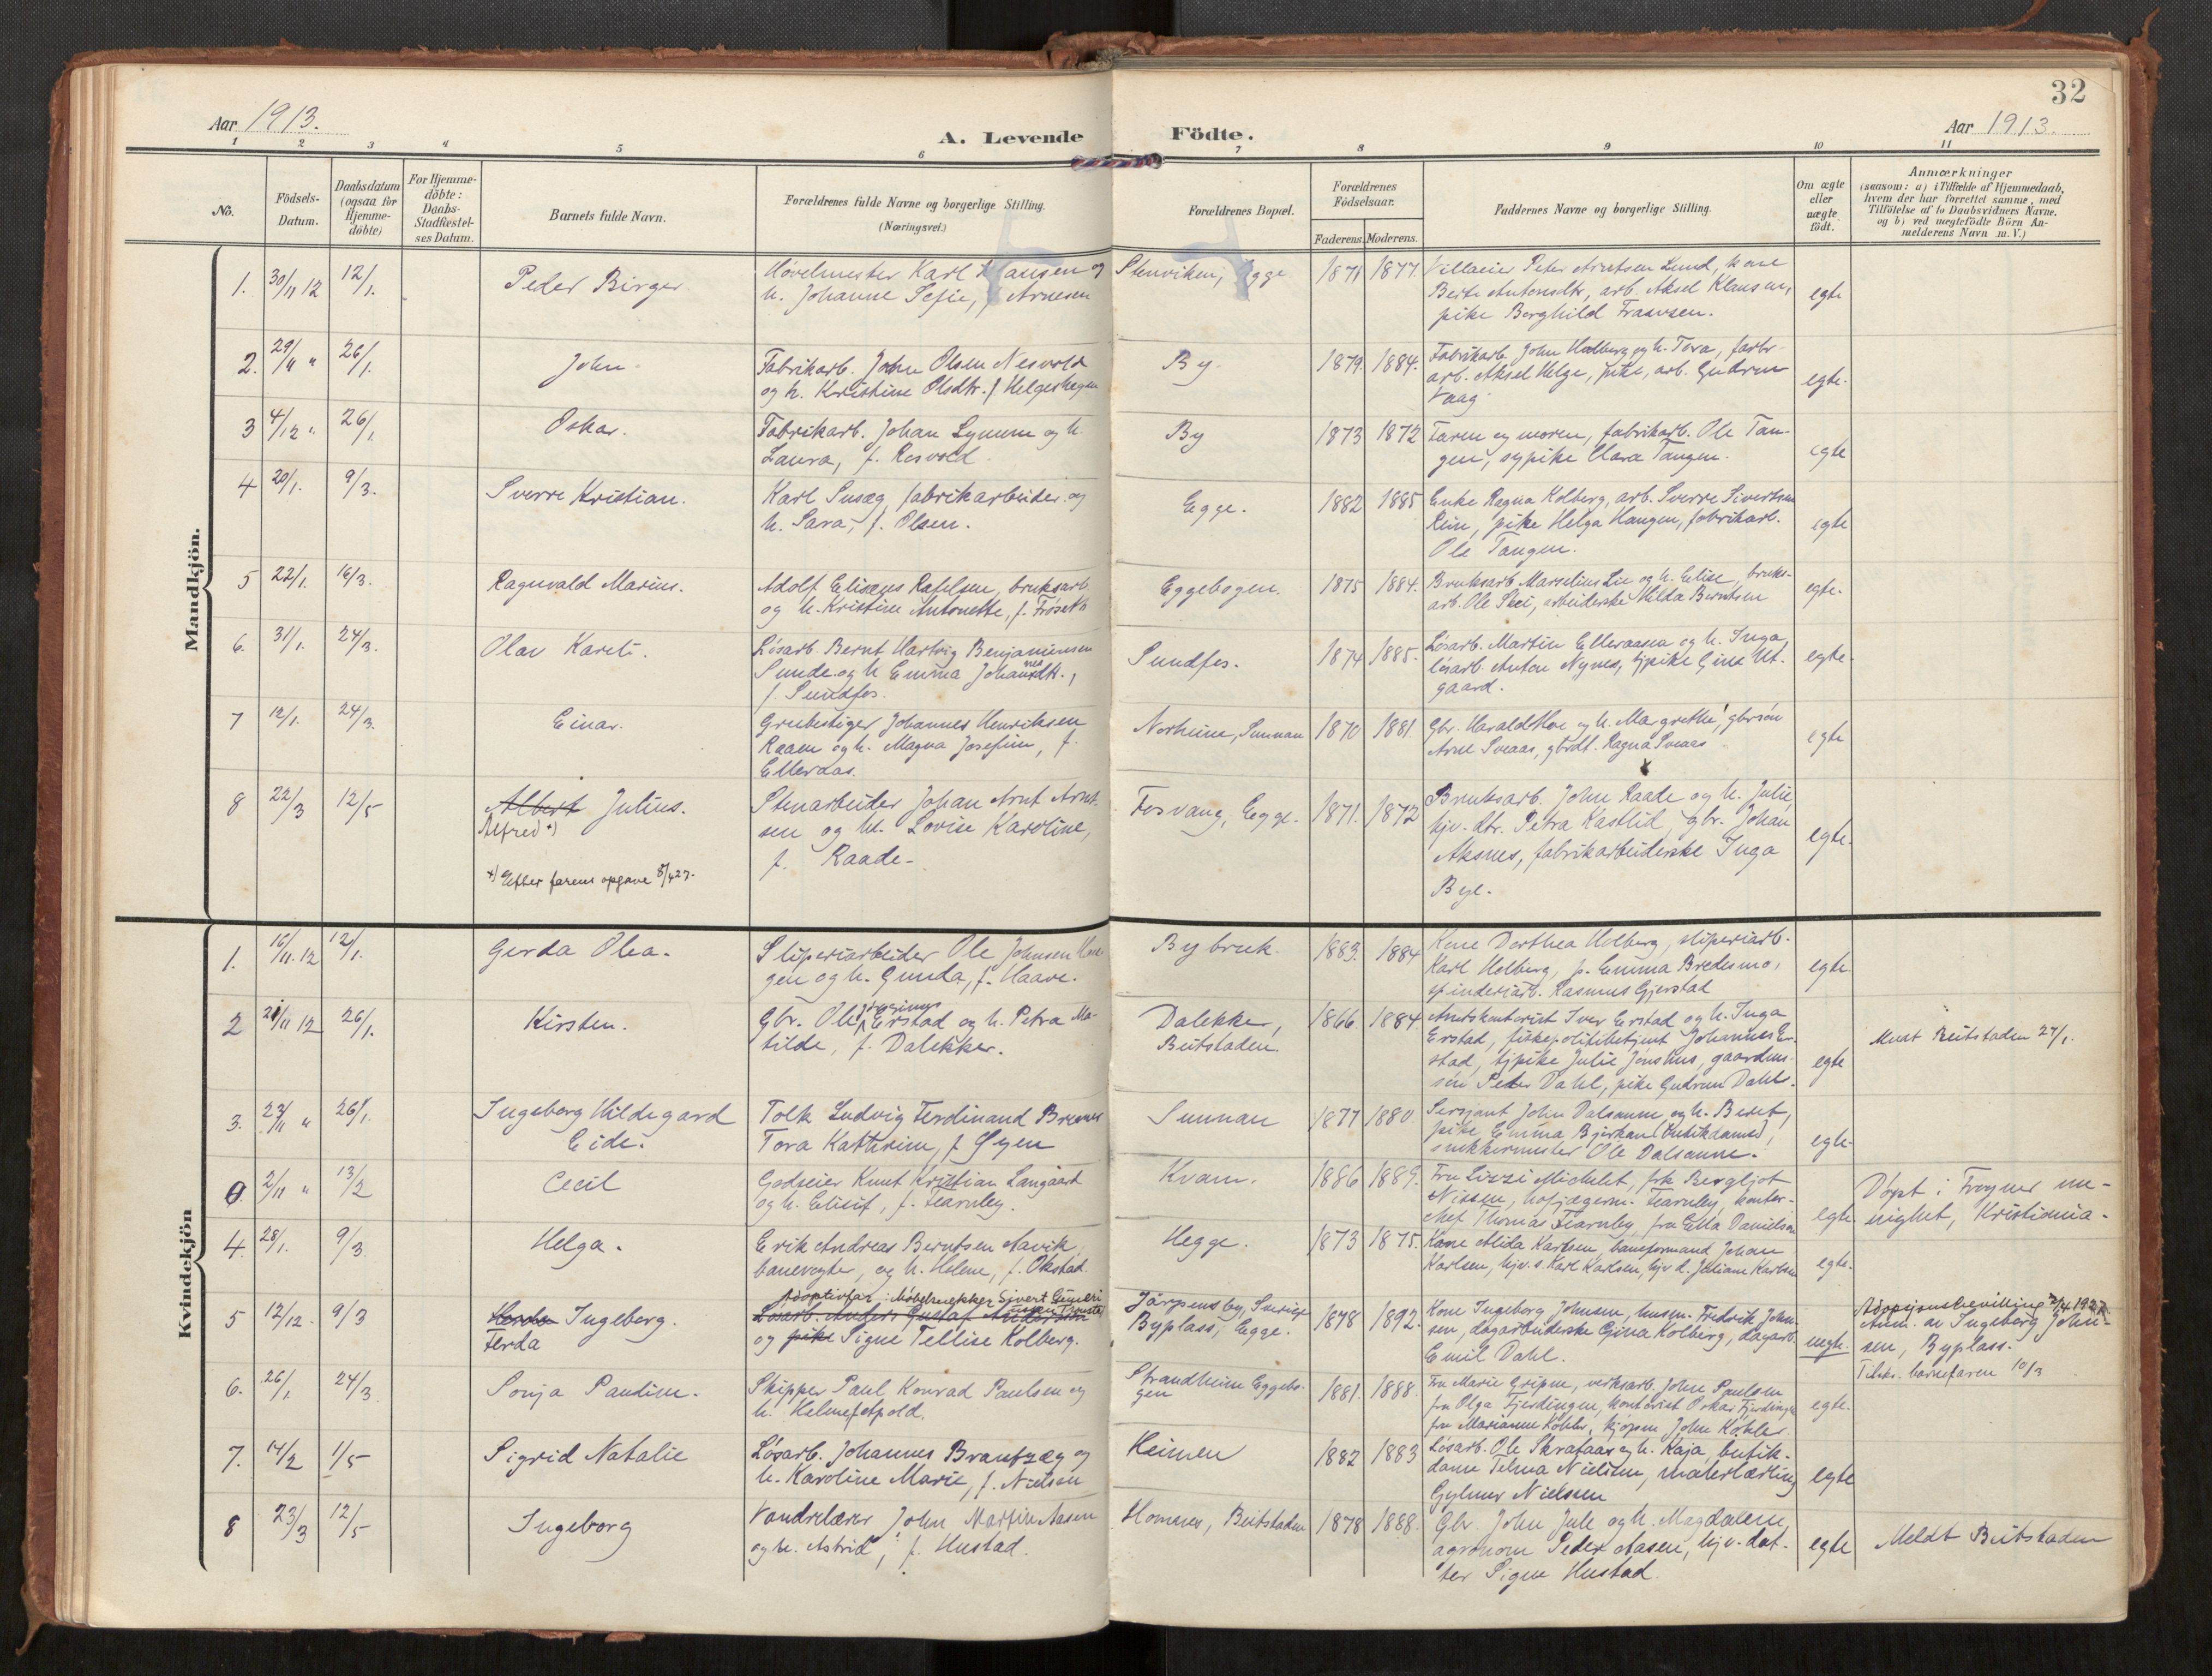 32
Aar 1913.
A. Levende Födte.
Aar 1913.
1 2 3 4 5 6 7 8 9 10 11
No.
Födsels-
Datum.
Daabsdatum
(ogsaa for
Hjemme-
döbte)
For Hjemme-
döbte:
Daabs-
Stadfæstel-
ses Datum.
Barnets fulde Navn.
Forældrenes fulde Navne og borgerlige Stilling.
(Næringsvei.)
Forældrenes Bopæl.
Forældrenes
Födselsaar.
Faderens. Moderens.
Faddernes Navne og borgerlige Stilling.
Om ægte
eller
uægte
födt.
Anmærkninger
(saasom: a) i Tilfælde af Hjemmedaab,
hvem der har forrettet samme, med
Tilföielse af to Daabsvidners Navne,
og b) ved uægtefödte Börn An-
melderens Navn m. V.)
Mandkjön.
1. 30/11 12 12/1. Peder Birger
Høvelmester Karl Hansen og
h. Johanne Sofie, f. Arnesen
Stenviken, Egge 1871 1877.
Villaeier Peter Arntsen Lund, kone
Berte Antonsdtr, arb. Aksel Klausen,
pike Borghild
egte
2. 29/11 " 26/1. John.
Fabrikarb. John Olsen Nesvold
og h. Kristine Olsdtr. f. Helgeshagen
By. 1879. 1884.
Fabrikarb. John Holberg og h. Tora,
arb. Aksel Helge, pike, arb. Gudrun
Vaag
egte.
3 4/12 " 26/1. Oskar.
Fabrikarb. Johan Lynum og h.
Laura, f. Resvold
By 1873 1872
Faren og moren, fabrikarb. Ole Tan-
gen, sypike Clara Tangen.
egte
4 20/1. 9/3. Sverre Kristian.
Karl Susæg, fabrikarbeider og
h. Sara, f. Olsen.
Egge. 1882 1885
Enke Ragna Kolberg, arb. Sverre Sivertsen
Rein, pike Helga Haugen, fabrikarb.
Ole Tangen.
egte
5 22/1. 16/3. Ragnvald Marius.
Adolf Eliseus Rafelsen, bruksarb.
og h. Kristine Antonette, f.
Eggebogen. 1875 1884.
Bruksarb. Marselius Lie og h. Elise, bruks-
arb. Ole Skei, arbeiderske Hilda Berntsen
egte.
6. 31/1. 24/3. Olav Kareli.
Løsarb. Bernt Hartvig Benjaminsen
Sunde og h. Emma Johannesdtr.,
f. Sundfos.
Sundfos. 1874 1885.
Løsarb. Martin Elleraasen og h. Inga,
løsarb. Anton Nynes, tjpike Gina Ut-
gaard.
egte.
7 12/1. 24/3. Einar.
Grubestiger Johannes Henriksen
Raaen og h. Magna Josefine, f.
Elleraas.
Norheim, Sunnan 1870 1881.
Gbr. Harald Hoe og h. Margrethe, gbrsøn
Arne Sveaas, gbrdt. Ragna Sveaas
egte
8 22/3 12/5 Albert Julius.
Alfred *)
*) Efter farens opgave 8/4 27.
Stenarbeider Johan Arnt Arnt-
sen og h. Lovise Karoline,
f. Raade.
Fosvang, Egge. 1871. 1872
Bruksarb. John Raade og h. Julie,
hjv. dtr. Petra Kastlid, gbr. Johan
Aksnes, fabrikarbeiderske Inga
Bye.
egte.
Kvindekjön
1. 16/11. 12 12/1. Gerda Olea.
Sliperiarbeider Ole Johnsen Hau-
gen og h. Gunda, f. Haave.
By bruk. 1883. 1884
Kone Dorthea Holberg, sliperiarb.
Karl Holberg, p. Emma Bredesmo,
spinderiarb. Rasmus Gjerstad
egte.
2 21/11 12 26/1. Kirsten.
Gbr. Ole Jørginus Erstad og h. Petra Ma-
tilde, f. Dalekker.
Dalekker,
Beitstaden. 1866. 1884.
Amtskontorist Iver Erstad og h. Inga
Erstad, Johannes Er-
stad, tjpike Julie Jønshus, gaardmm-
søn Peder Dahl, pike Gudrun Dahls.
egte
Meldt Beitstaden 27/1.
3. 23/11 " 26/1. Ingeborg Hildegard
Eide.
Tolk Ludvig Ferdinand
Tora Katherine, f. Øyen
Sunnan 1877 1880.
Sersjant John Dalsaune og h. Beret,
pike Emma Bjerkan (butikdame),
snikkermester Ole Dalsaune.
egte.
0. 2/11 " 13/2 Cecil
Godseier Knut Kristian Langaard
og h. Elisif, f. Fearnley.
Kvam. 1886 1889.
Fru Lizzi Michelet, frk Bergljot
Nissen, hofjægerm. Fearnley, kontor-
chef Thomas Fearnley, fru Ella Danielsen
egte
Døpt i Frogner me-
nighet, Kristiania.
4. 28/1. 9/3. Helga.
Erik Andreas Berntsen Aavik,
banevogter, og h. Helene, f. Okstad.
Hegge. 1873 1875.
Kone Alida Karlsen, baneformand Johan
Karlsen, hjv. s. Karl Karlsen, hjv d. Juliane Karlsen
egte.
5 12/12. 9/3 Herda Ingeborg.
Ferda
Adoptivfar: Møbelsnekker Sivert
Løsarb. Anders Gustaf Andersson
og pike Signe Tellise Kolberg.
Järpensby, Sverige
Byplass, Egge. 1878 1892.
Kone Ingeborg Johnsen, husm. Fredrik John-
sen, dagarbeiderske Gina Kolberg, dagarb.
Emil Dahl.
uegte.
Adopsjonsbevilling 1927
Anm. av Ingeborg John-
sen, Byplass.
Tilsk. barnefaren 10/3
6. 26/1 24/3. Sonja Paudine.
Skipper Paul Konrad Paulsen og
h. Helene
Strandheim Eggebo-
gen 1881. 1888.
Fru Marie Gripne, verksarb. John Paulsen
fru Olga Fjerdingen, kontorist Oskar Fjerdingen
fru Marianne Köhler, kjøpm John Köhler.
egte.
7. 14/2 1/5 Sigrid Natalie
Løsarb. Johannes Brantzæg og
h. Karoline Marie, f. Nielsen
Heimen 1882 1883
Løsarb. Ole Skrataas og h. Kaja, butik-
dame Telma Nielsen, malerlærling
Gylmer Nielsen
egte
8 23/3 12/5 Ingeborg
Vandrelærer John Martin Aasen
og h. Astrid, f. Hustad.
Homnes, Beitstaden 1878 1888.
Gbr. John Jule og h. Magdalene,
agronom Peder Aasen, hjv. dat-
ter Signe Hustad.
egte
Meldt Beitstaden